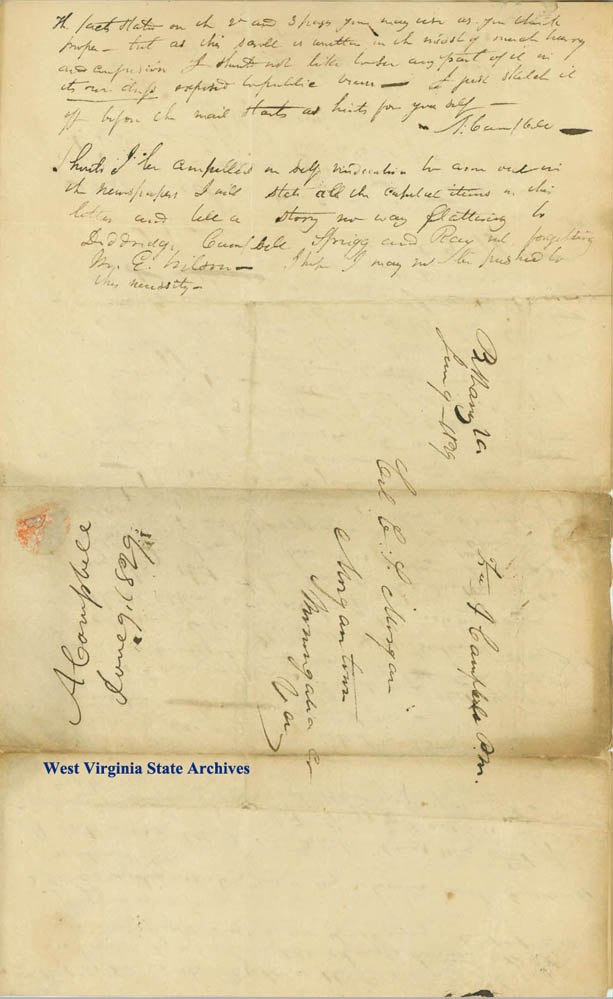 The facts stated on the 2d and 3 pages you may use as you think
proper – but as this scroll is written in the midst of much hurry
and confusion I should not like to see any part of it in
its own dress exposed to public view – I just sketch it
off before the mail starts as hints for your self –
A. Campbell –
Should I be compelled in self vindication to come out in
the newspapers I will state all the capital items in this
letter and tell a story no way flattering to
Doddridge, Campbell, Sprigg and Ray not forgetting
Mr. E. Wilson – I hope I may not be pushed to
this necessity –
Bethany Va
June 9 – 1829
Free A Campbell P.M.
Col. C. S. Morgan
Morgantown
Monongalia Co
Va
A Campbell
June 9, 1829
West Virginia State Archives